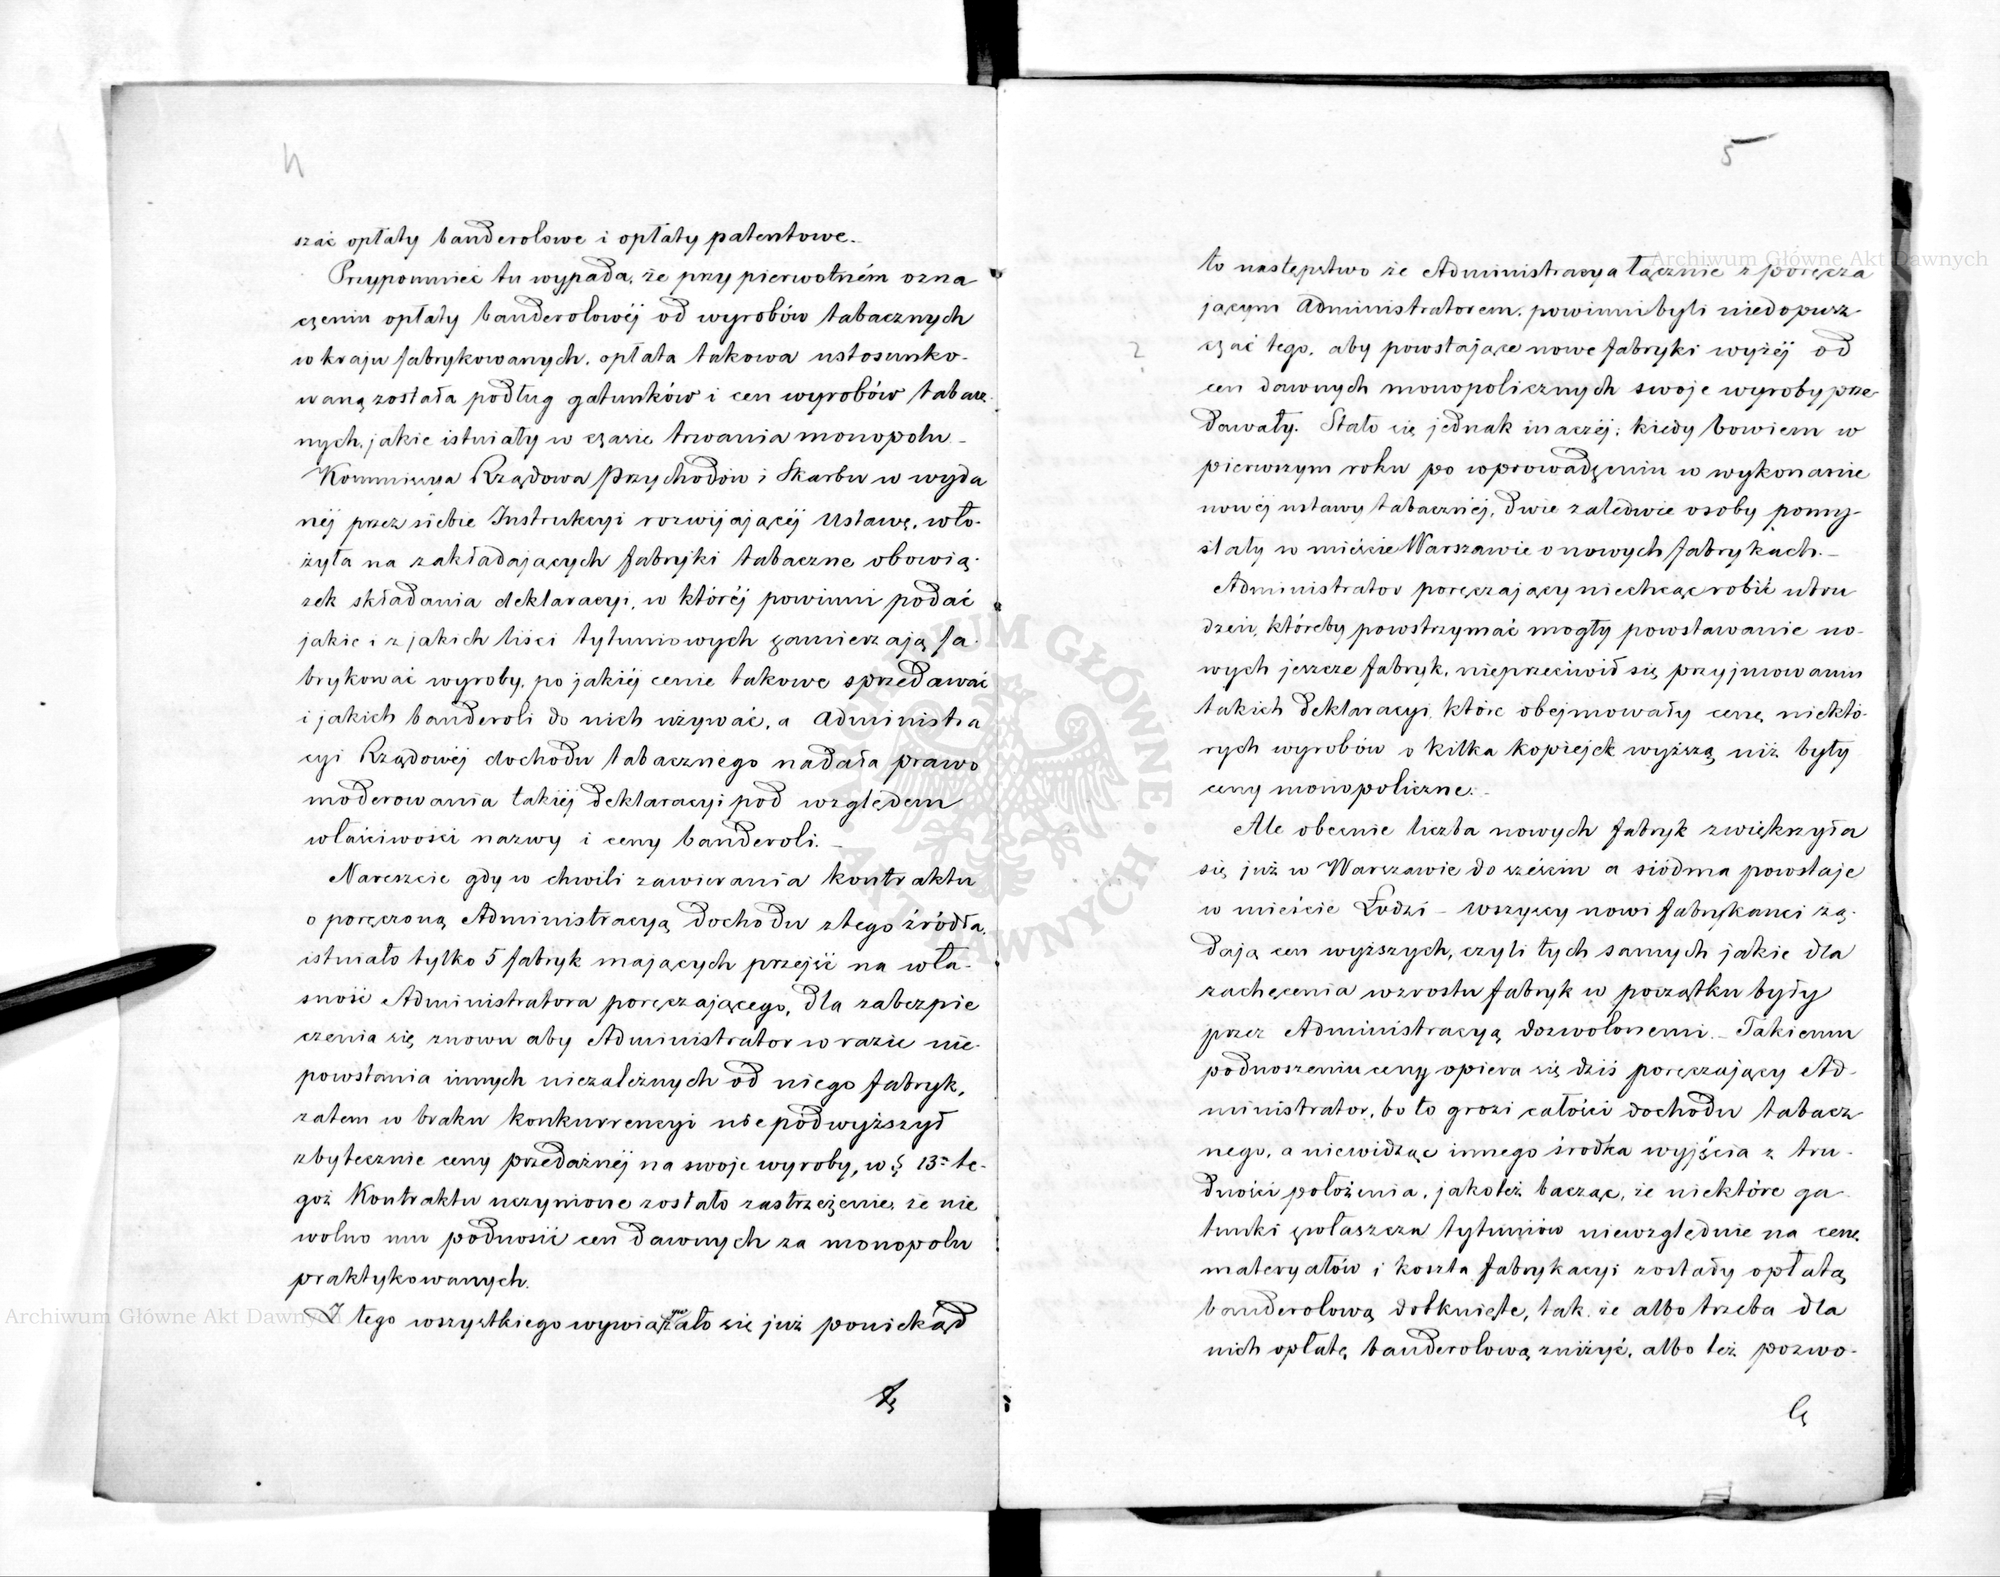 4
szać opłaty banderolowe i opłaty patentowe.
Przypomnieć tu wypada, że przy pierwotném ozna
czeniu opłaty banderolowéj od wyrobów tabacznych
w kraju fabrykowanych, opłata takowa ustosunko-
waną została podług gatunków i cen wyrobów tabacz
nych, jakie istniały w czasie trwania monopolu –
Kommissya Rządowa Przychodów i Skarbu w wyda
néj przez siebie Instrukcyi rozwijającéj Ustawę, wło-
żyła na zakładających fabryki tabaczne obowią-
zek składania deklaracyi, w któréj powinni podać
jakie i z jakich liści tytuniowych zamierzają fa-
brykować wyroby, po jakiéj cenie takowe sprzedawać
i jakich banderoli do nich używać, a Administra
cyi Rządowéj dochodu tabacznego nadała prawo
moderowania takiéj deklaracyi pod względem
właściwości nazwy i ceny banderoli. –
Nareszcie gdy w chwili zawierania kontraktu
o poręczoną Administracyą dochodu z tego źródła,
istniało tylko 5 fabryk mających przejść na wła-
sność Administratora poręczającego, dla zabezpie
czenia się znowu aby Administrator w razie nie-
powstania innych niezależnych od niego fabryk,
zatem w braku konkurrencyi nie podwyższył
zbytecznie ceny przedażnéj na swoje wyroby, w § 13m te-
goż Kontraktu uczynione zostało zastrzeżenie, że nie
wolno mu podnosić cen dawnych za monopolu
praktykowanych.
Z tego wszystkiego wywiązało się już poniekąd
5
to następstwo że Administracya łącznie z poręcza
jącym Administratorem, powinni byli niedopusz-
czać tego, aby powstające nowe fabryki wyżéj od
cen dawnych monopolicznych swoje wyroby prze-
dawały. Stało się jednak inaczéj; kiedy bowiem w
pierwszym roku po wprowadzeniu w wykonanie
nowéj ustawy tabacznéj, dwie zaledwie osoby pomy-
ślały w mieście Warszawie o nowych fabrykach. –
Administrator poręczający niechcąc robić utru
dzeń, któreby powstrzymać mogły powstawanie no-
wych jeszcze fabryk, nieprzeciwił się przyjmowaniu
takich deklaracyi, które obejmowały cenę niektó-
rych wyrobów o kilka kopiejek wyższą niż były
ceny monopoliczne. –
Ale obecnie liczba nowych fabryk zwiększyła
się już w Warszawie do sześciu a siódma powstaje
w mieście Łodzi – wszyscy nowi fabrykanci żą-
dają cen wyższych, czyli tych samych jakie dla
zachęcenia wzrostu fabryk w początku były
przez Administracyą dozwolonemi. – Takiemu
podnoszeniu ceny opiera się dziś poręczający Ad-
ministrator, bo to grozi całości dochodu tabacz
nego, a niewidząc innego środka wyjścia z tru-
dności położenia, jakoteż bacząc, że niektóre ga-
tunki zwłaszcza tytuniów niewzględnie na cenę
materyałów i koszta fabrykacyi zostały opłatą
banderolową dotknięte, tak że albo trzeba dla
nich opłatę banderolową zniżyć, albo też pozwo-
Archiwum Główne Akt Dawnych
Archiwum Główne Akt Dawnych
ARCHIWUM GŁÓWNE AKT DAWNYCH